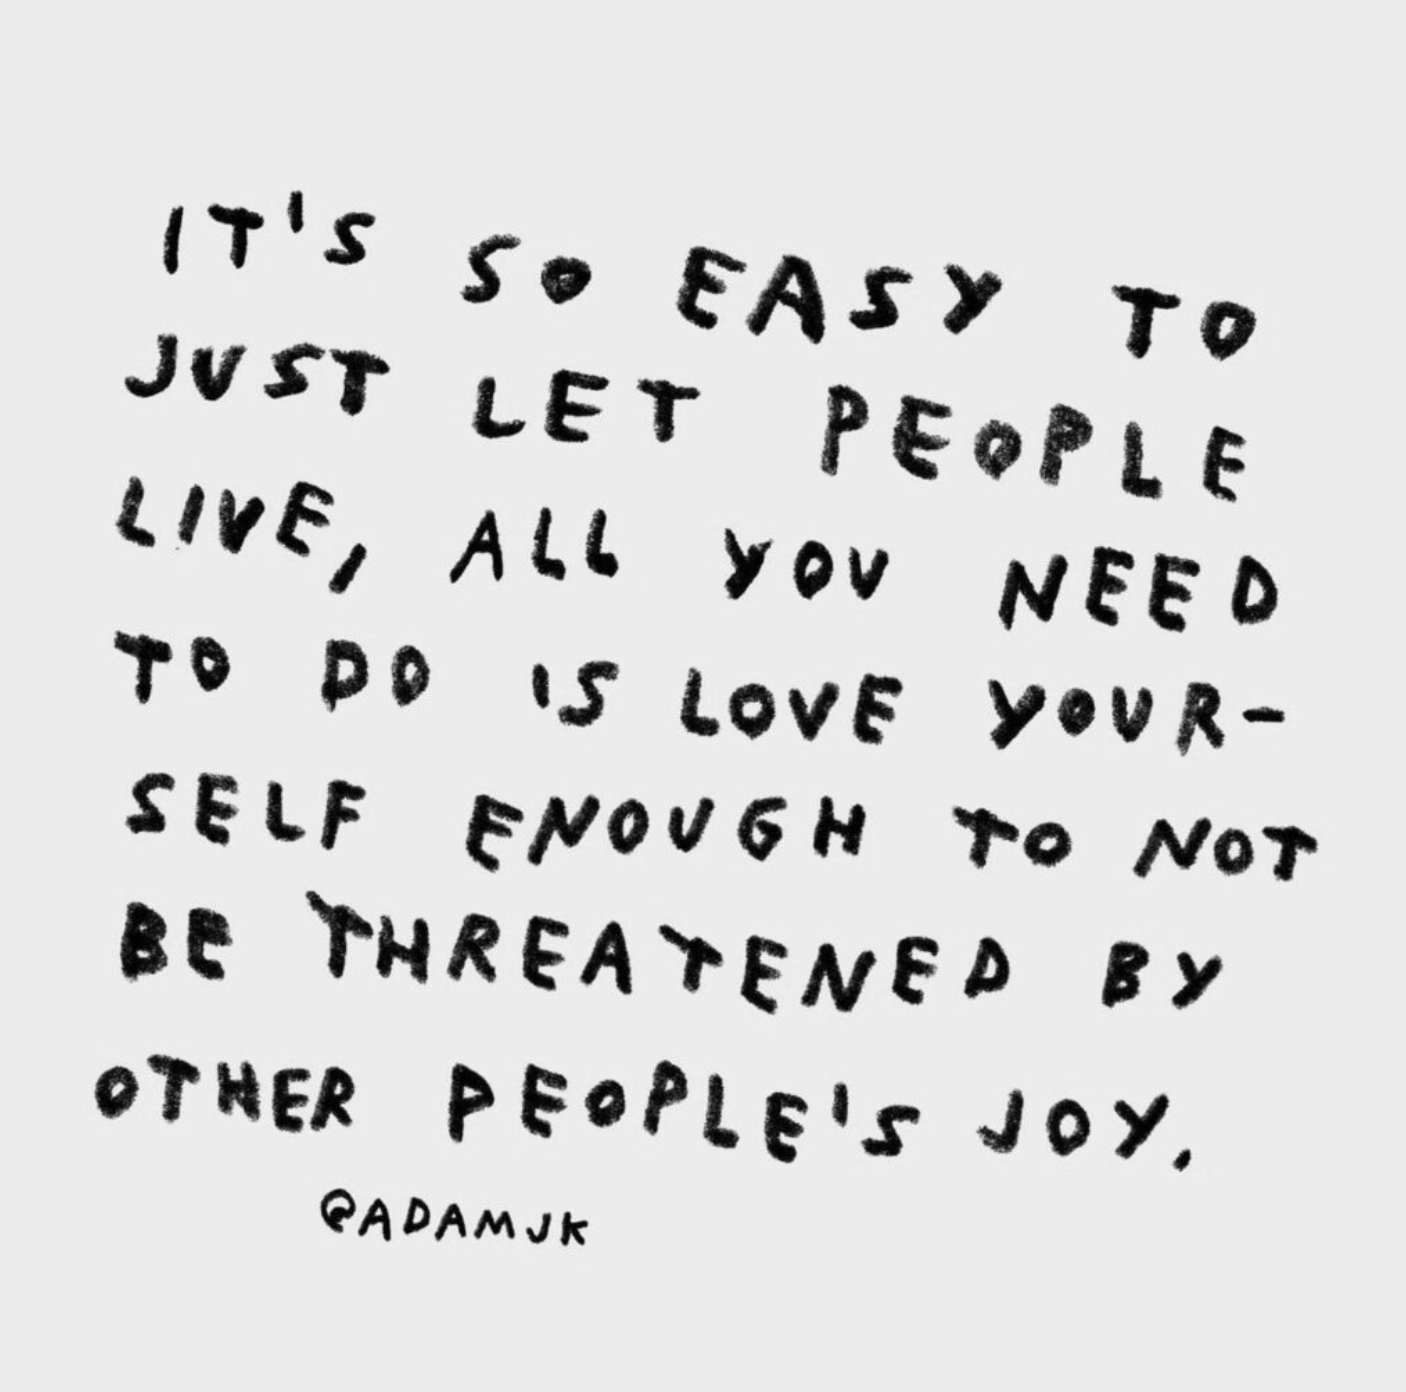 IT'S SO EASY TO
JUST LET PEOPLE
LIVE, ALL YOU NEED
TO DO IS LOVE YOUR-
SELF ENOUGH TO NOT
BE THREATENED BY
OTHER PEOPLE'S JOY.
@ADAMJK